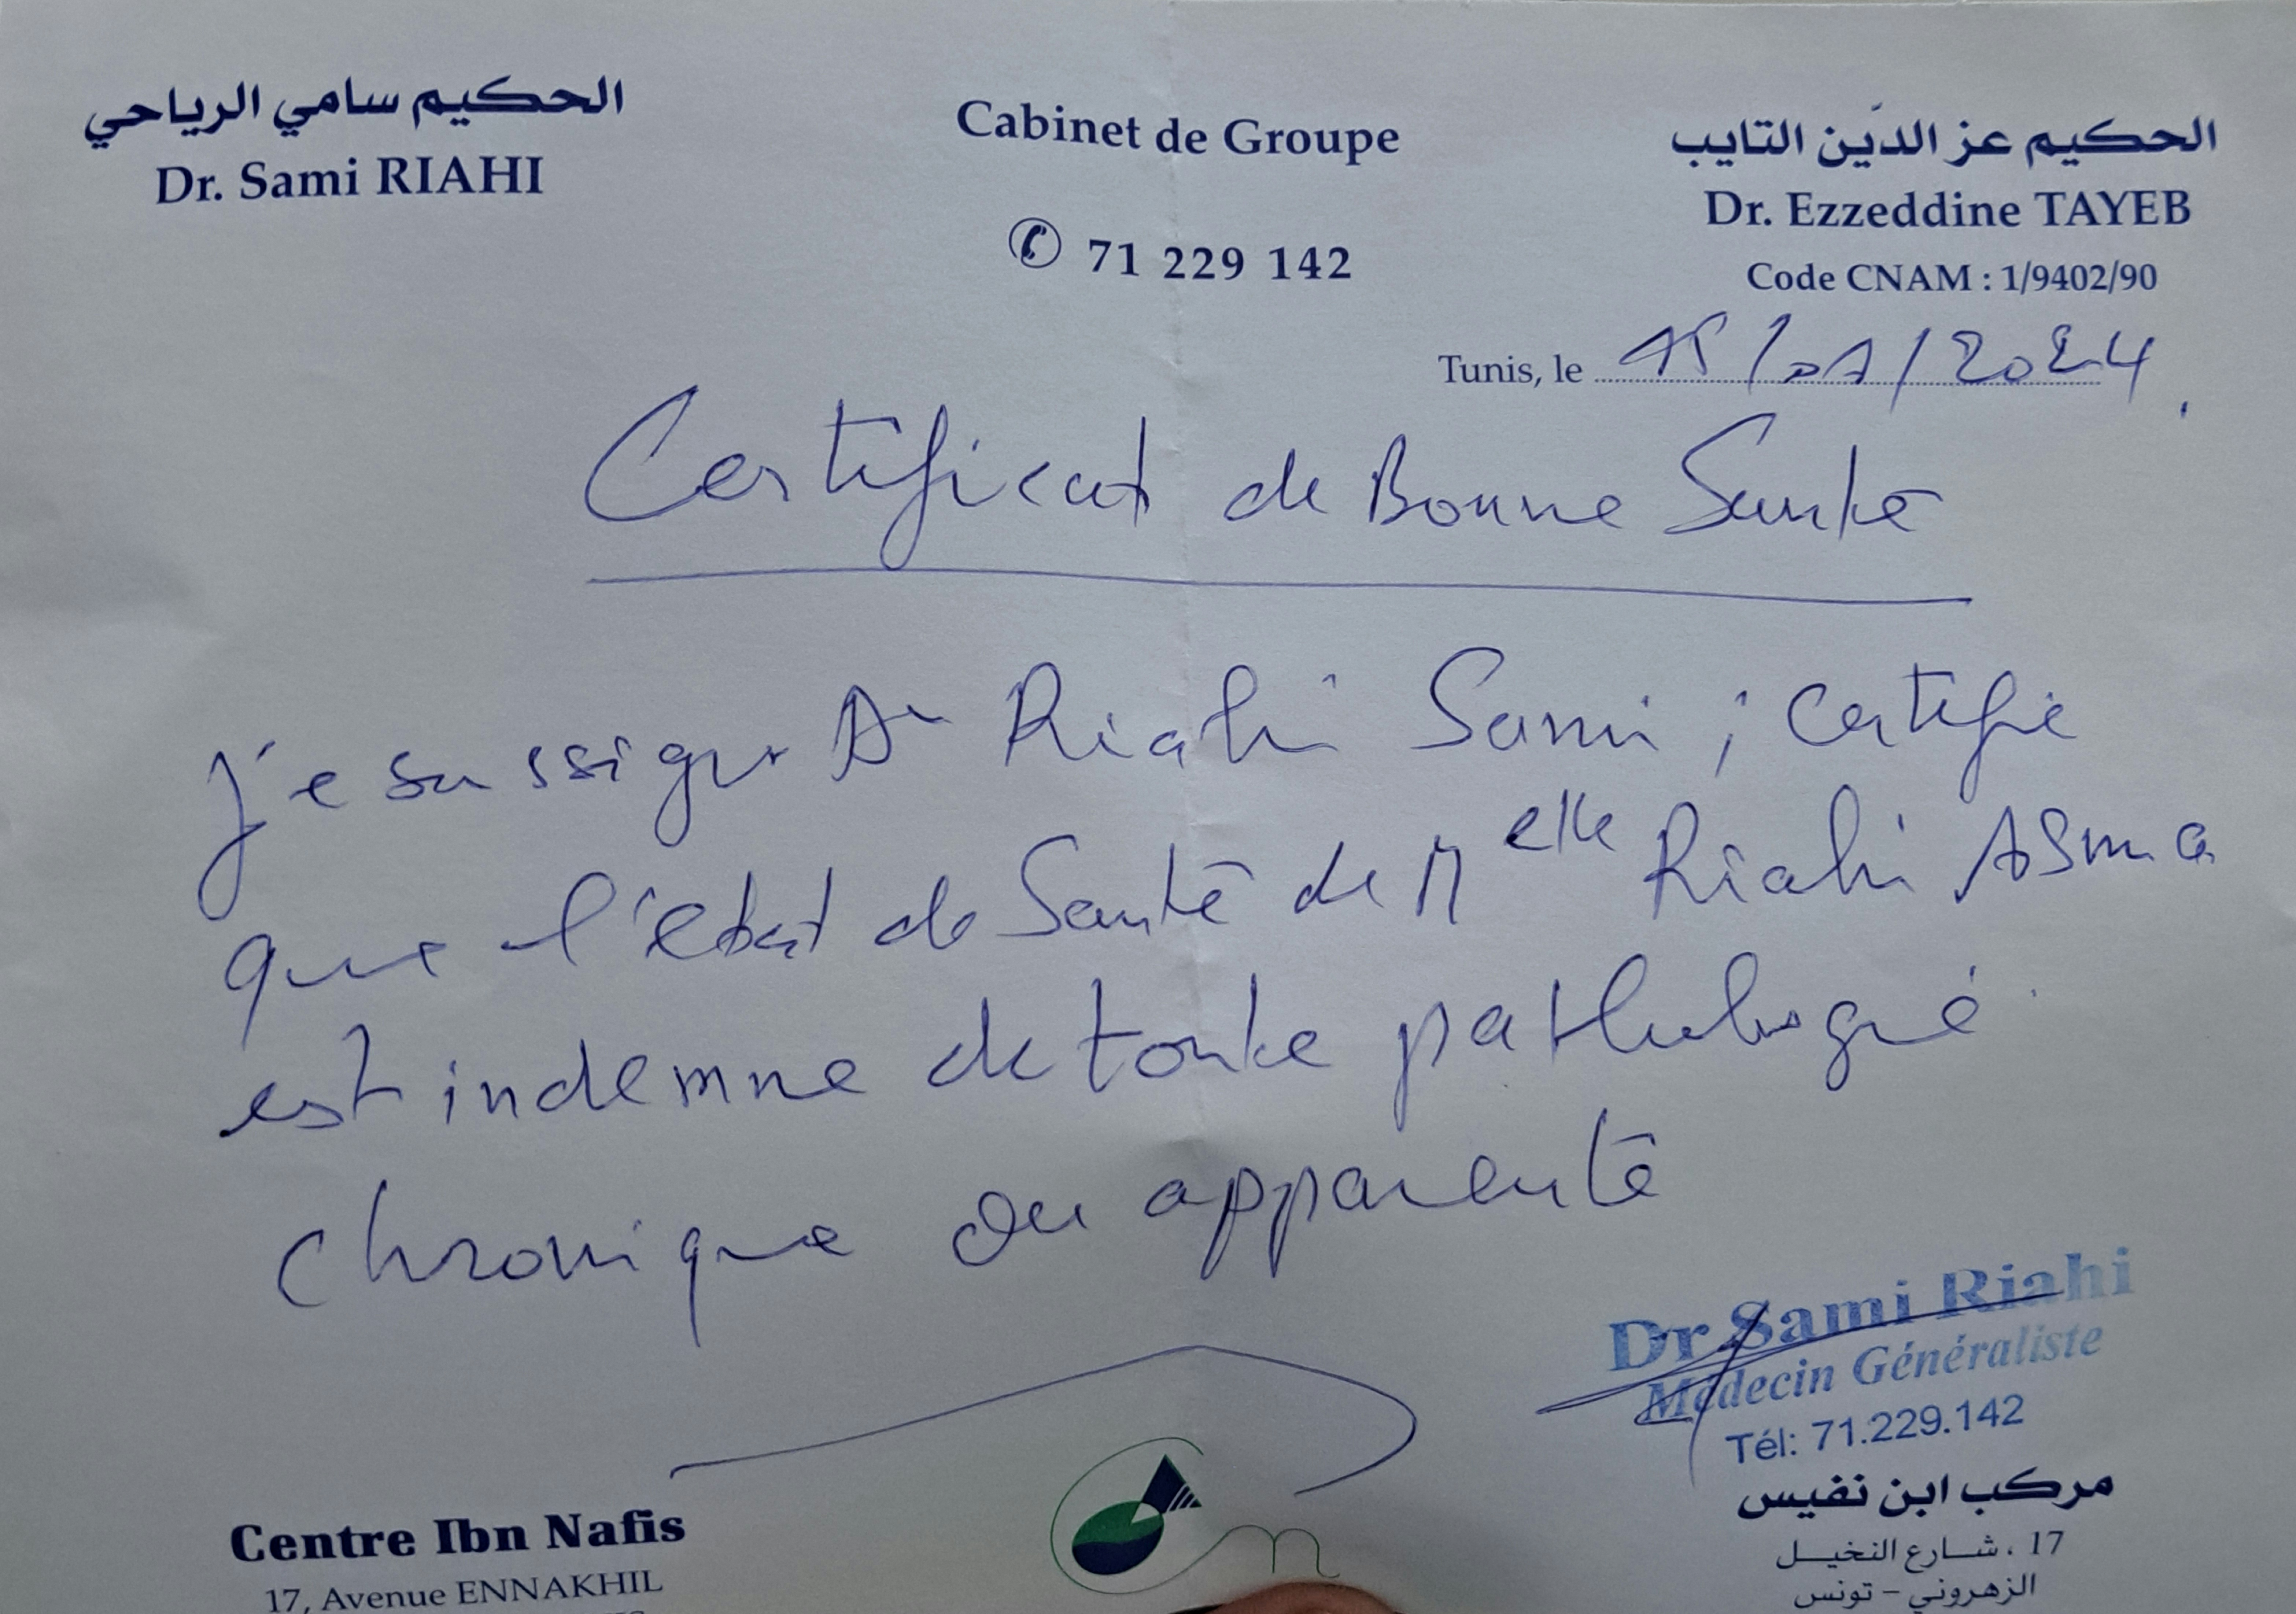 الحكيم سامي الرياحي
Dr. Sami RIAHI
Cabinet de Groupe
✆ 71 229 142
الحكيم عز الدّين التايب
Dr. Ezzeddine TAYEB
Code CNAM : 1/9402/90
Tunis, le 15/01/2024
Certificat de Bonne Santé
Je soussigné Dr Riahi Sami ; certifie
que l'état de Santé de Melle Riahi Asma
est indemne de toute pathologie
chronique ou apparente
Dr Sami Riahi
Médecin Généraliste
Tél: 71.229.142
Centre Ibn Nafis
17, Avenue ENNAKHIL
مركب ابن نفيس
17 ، شارع النخيل
الزهروني - تونس